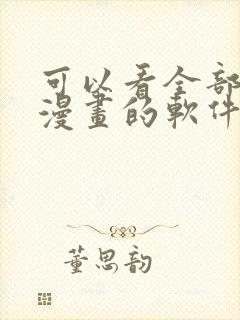 可以看全部
漫畫的軟件
董思韵